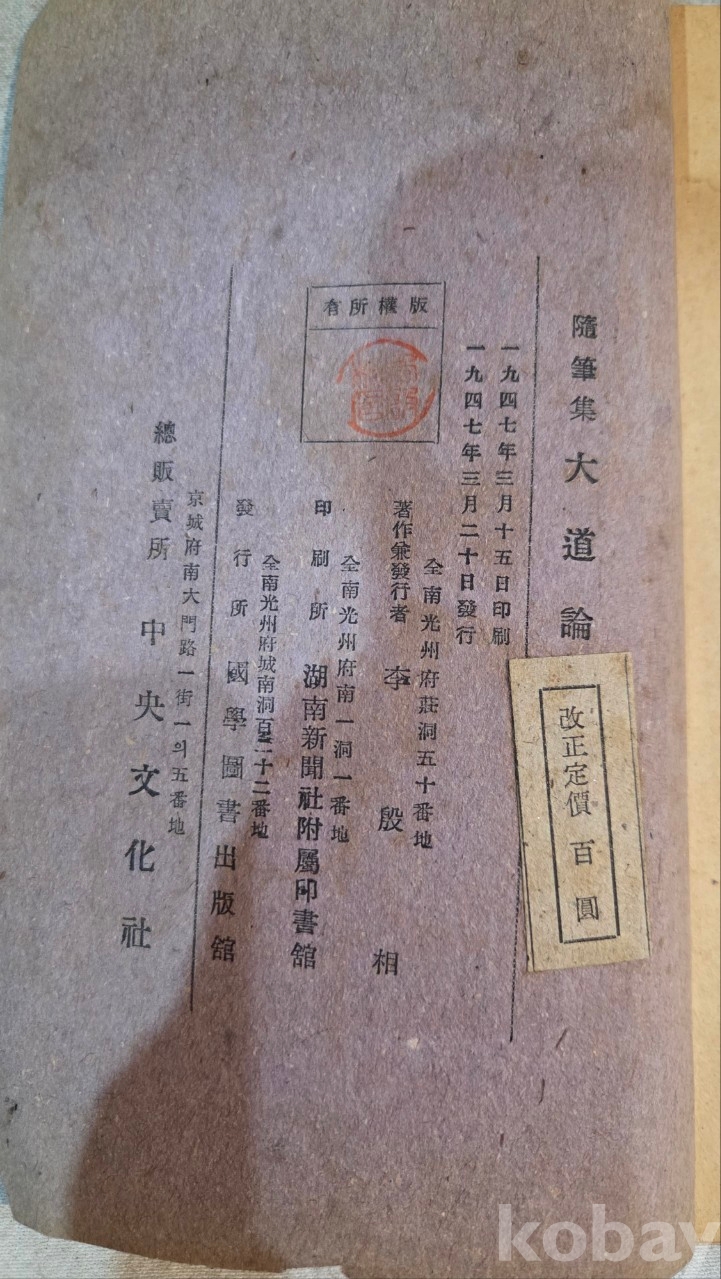 隨筆集 大道論
改正定價 百圓
一九四七年三月十五日印刷
一九四七年三月二十日發行
版權所有
全南光州府莊洞五十番地
著作兼發行者 李殷相
全南光州府南一洞一番地
印刷所 湖南新聞社附屬印書舘
全南光州府城南洞百二十二番地
發行所 國學圖書出版舘
京城府南大門路一街一의五番地
總販賣所 中央文化社
kobay